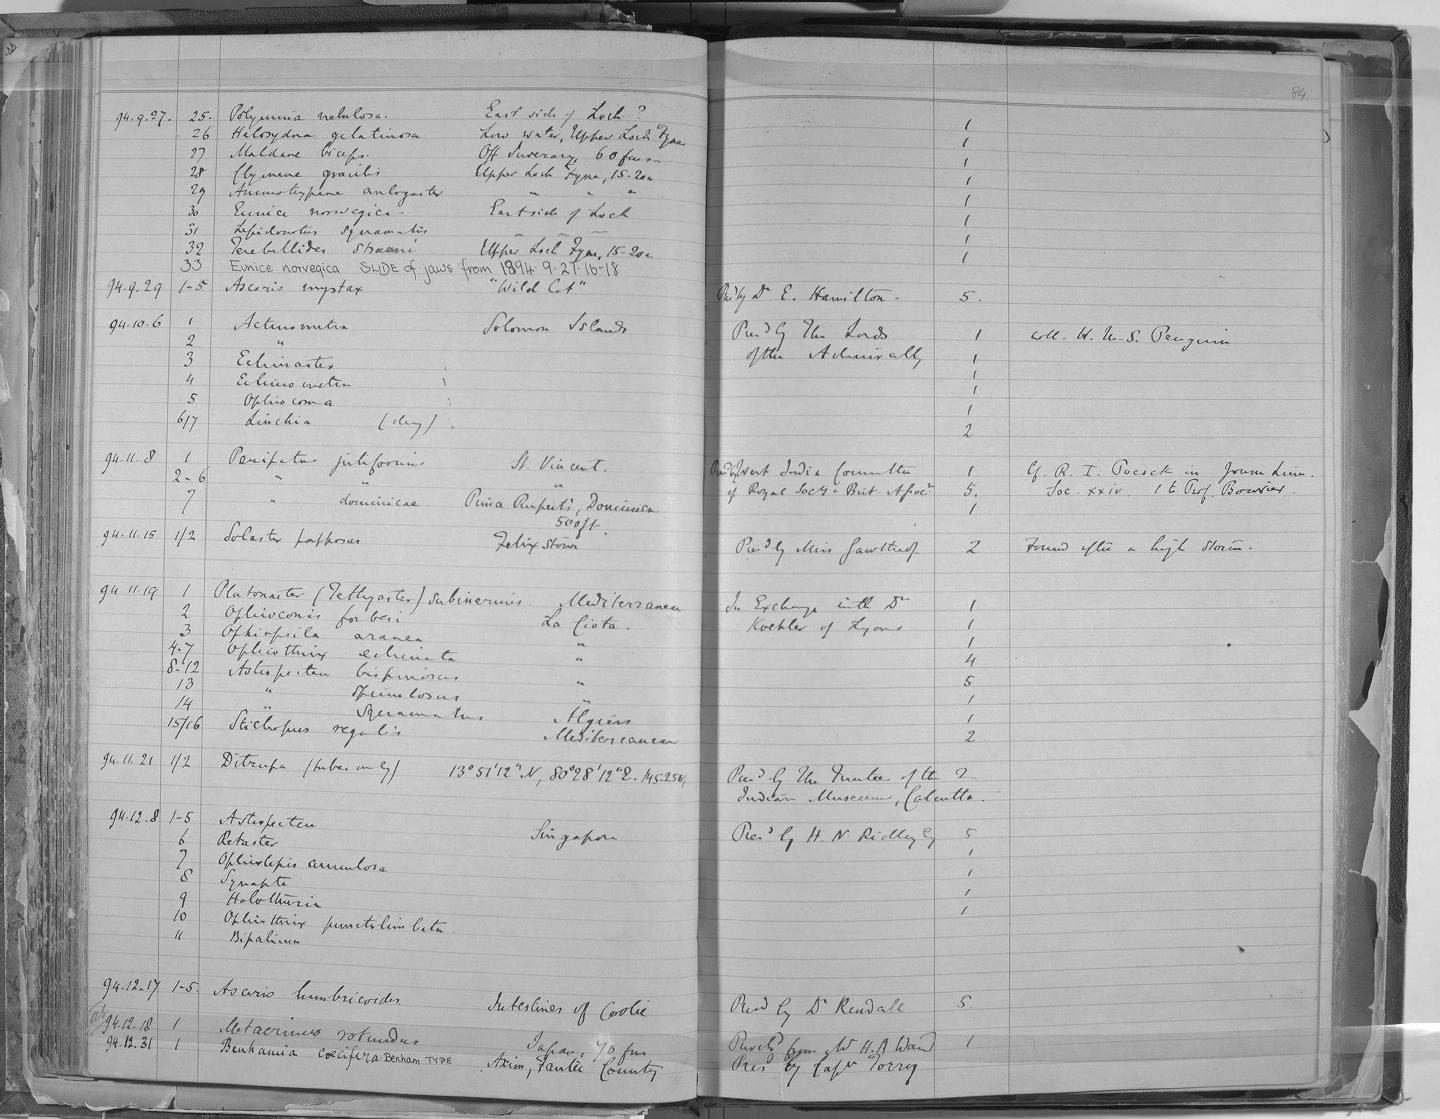 84
94.9.27. 25. Polymnia nebulosa. East side of Loch ? 1
26 Halosydna gelatinosa Low water, Upper Loch Fyne 1
27 Maldane biceps. Off Inverary, 60 fms 1
28 Clymene gracilis Upper Loch Fyne, 15-20 1
29 Ammotrypane aulogaster " " " 1
30 Eunice norvegica - East side of Loch 1
31 Lepidonotus squamatus 1
32 Terebellides stroemi Upper Loch Fyne, 15-20 1
33 Eunice norvegica SLIDE of jaws from 1894.9.27.16-18
94.9.29 1-5 Ascaris mystax "Wild Cat" Pres'd by Dr E. Hamilton. 5.
94.10.6 1 Actinometra Solomon Islands Pres'd by The Lords 1 Coll. H.M.S. Penguin
2 " of the Admiralty 1
3 Echinaster 1
4 Echinometra 1
5 Ophiocoma 1
6/7 Linckia (dry) 2
94.11.8 1 Peripatus juliformis St. Vincent. West India Committee 1 Cf. R. I. Pocock in Journ Linn.
2-6 " " " of Royal Socy & Brit Assoc 5. Soc. xxiv. 1 to Prof. Bouvier.
7 " dominicae Prince Rupert's, Dominica 1
500 ft.
94.11.15 1/2 Solaster papposus Felixstowe Pres'd by Miss 2 Found after a high storm.
94.11.19 1 Plutonaster (Tethyaster) subinermis. Mediterranean In Exchange with Dr 1
2 Ophioconis forbesi La Ciota. Koehler of Lyons 1
3 Ophiopsila aranea " 1
4-7 Ophiothrix echinata " 4
8-12 Astropecten bispinosus " 5
13 " spinulosus " 1
14 " squamatus Algiers 1
15/16 Stichopus regalis Mediterranean 2
94.11.21 1/2 Ditrupa (tubes only) 13°51'12"N, 80°28'12"E. 145-250, Pres'd by The Trustees of the 2
Indian Museum, Calcutta.
94.12.8 1-5 Astropecten Singapore Pres'd by H. N. Ridley Esq 5
6 Retaster 1
7 Ophiolepis annulosa 1
8 Synapta 1
9 Holothuria 1
10 Ophiothrix punctolimbata
11 Bipalium
94.12.17 1-5. Ascaris lumbricoides Intestines of Coolie Pres'd by Dr Rendall 5
94.12.18 1 Metacrinus rotundus Japan, 70 fms Purch'd from Mr H. A Ward 1
94.12.31 1 Benhamia caecifera Benham TYPE Axim, Fantee Country Pres'd by Capn Torry